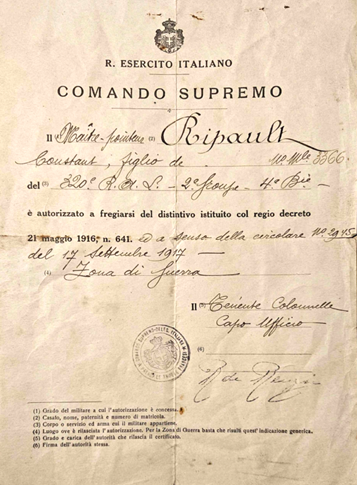 R. ESERCITO ITALIANO
COMANDO SUPREMO
Il (1) Maître-pointeur (2) Ripault
Constant, figlio de nº Mle 5566
del (3) 320º R.A.L. - 2º Groupe - 4º Bie
è autorizzato a fregiarsi del distintivo istituito col regio decreto
21 maggio 1916, n. 641. e a senso della circolare Nº 3915
del 17 Settembre 1917 -
(4) Zona di Guerra
Il (5) Tenente Colonnello
Capo Ufficio
(6)
(1) Grado del militare a cui l'autorizzazione è concessa.
(2) Casato, nome, paternità e numero di matricola.
(3) Corpo o servizio ed arma cui il militare appartiene.
(4) Luogo ove è rilasciata l'autorizzazione. Per la Zona di Guerra basta che risulti quest'indicazione generica.
(5) Grado e carica dell'autorità che rilascia il certificato.
(6) Firma dell'autorità stessa.